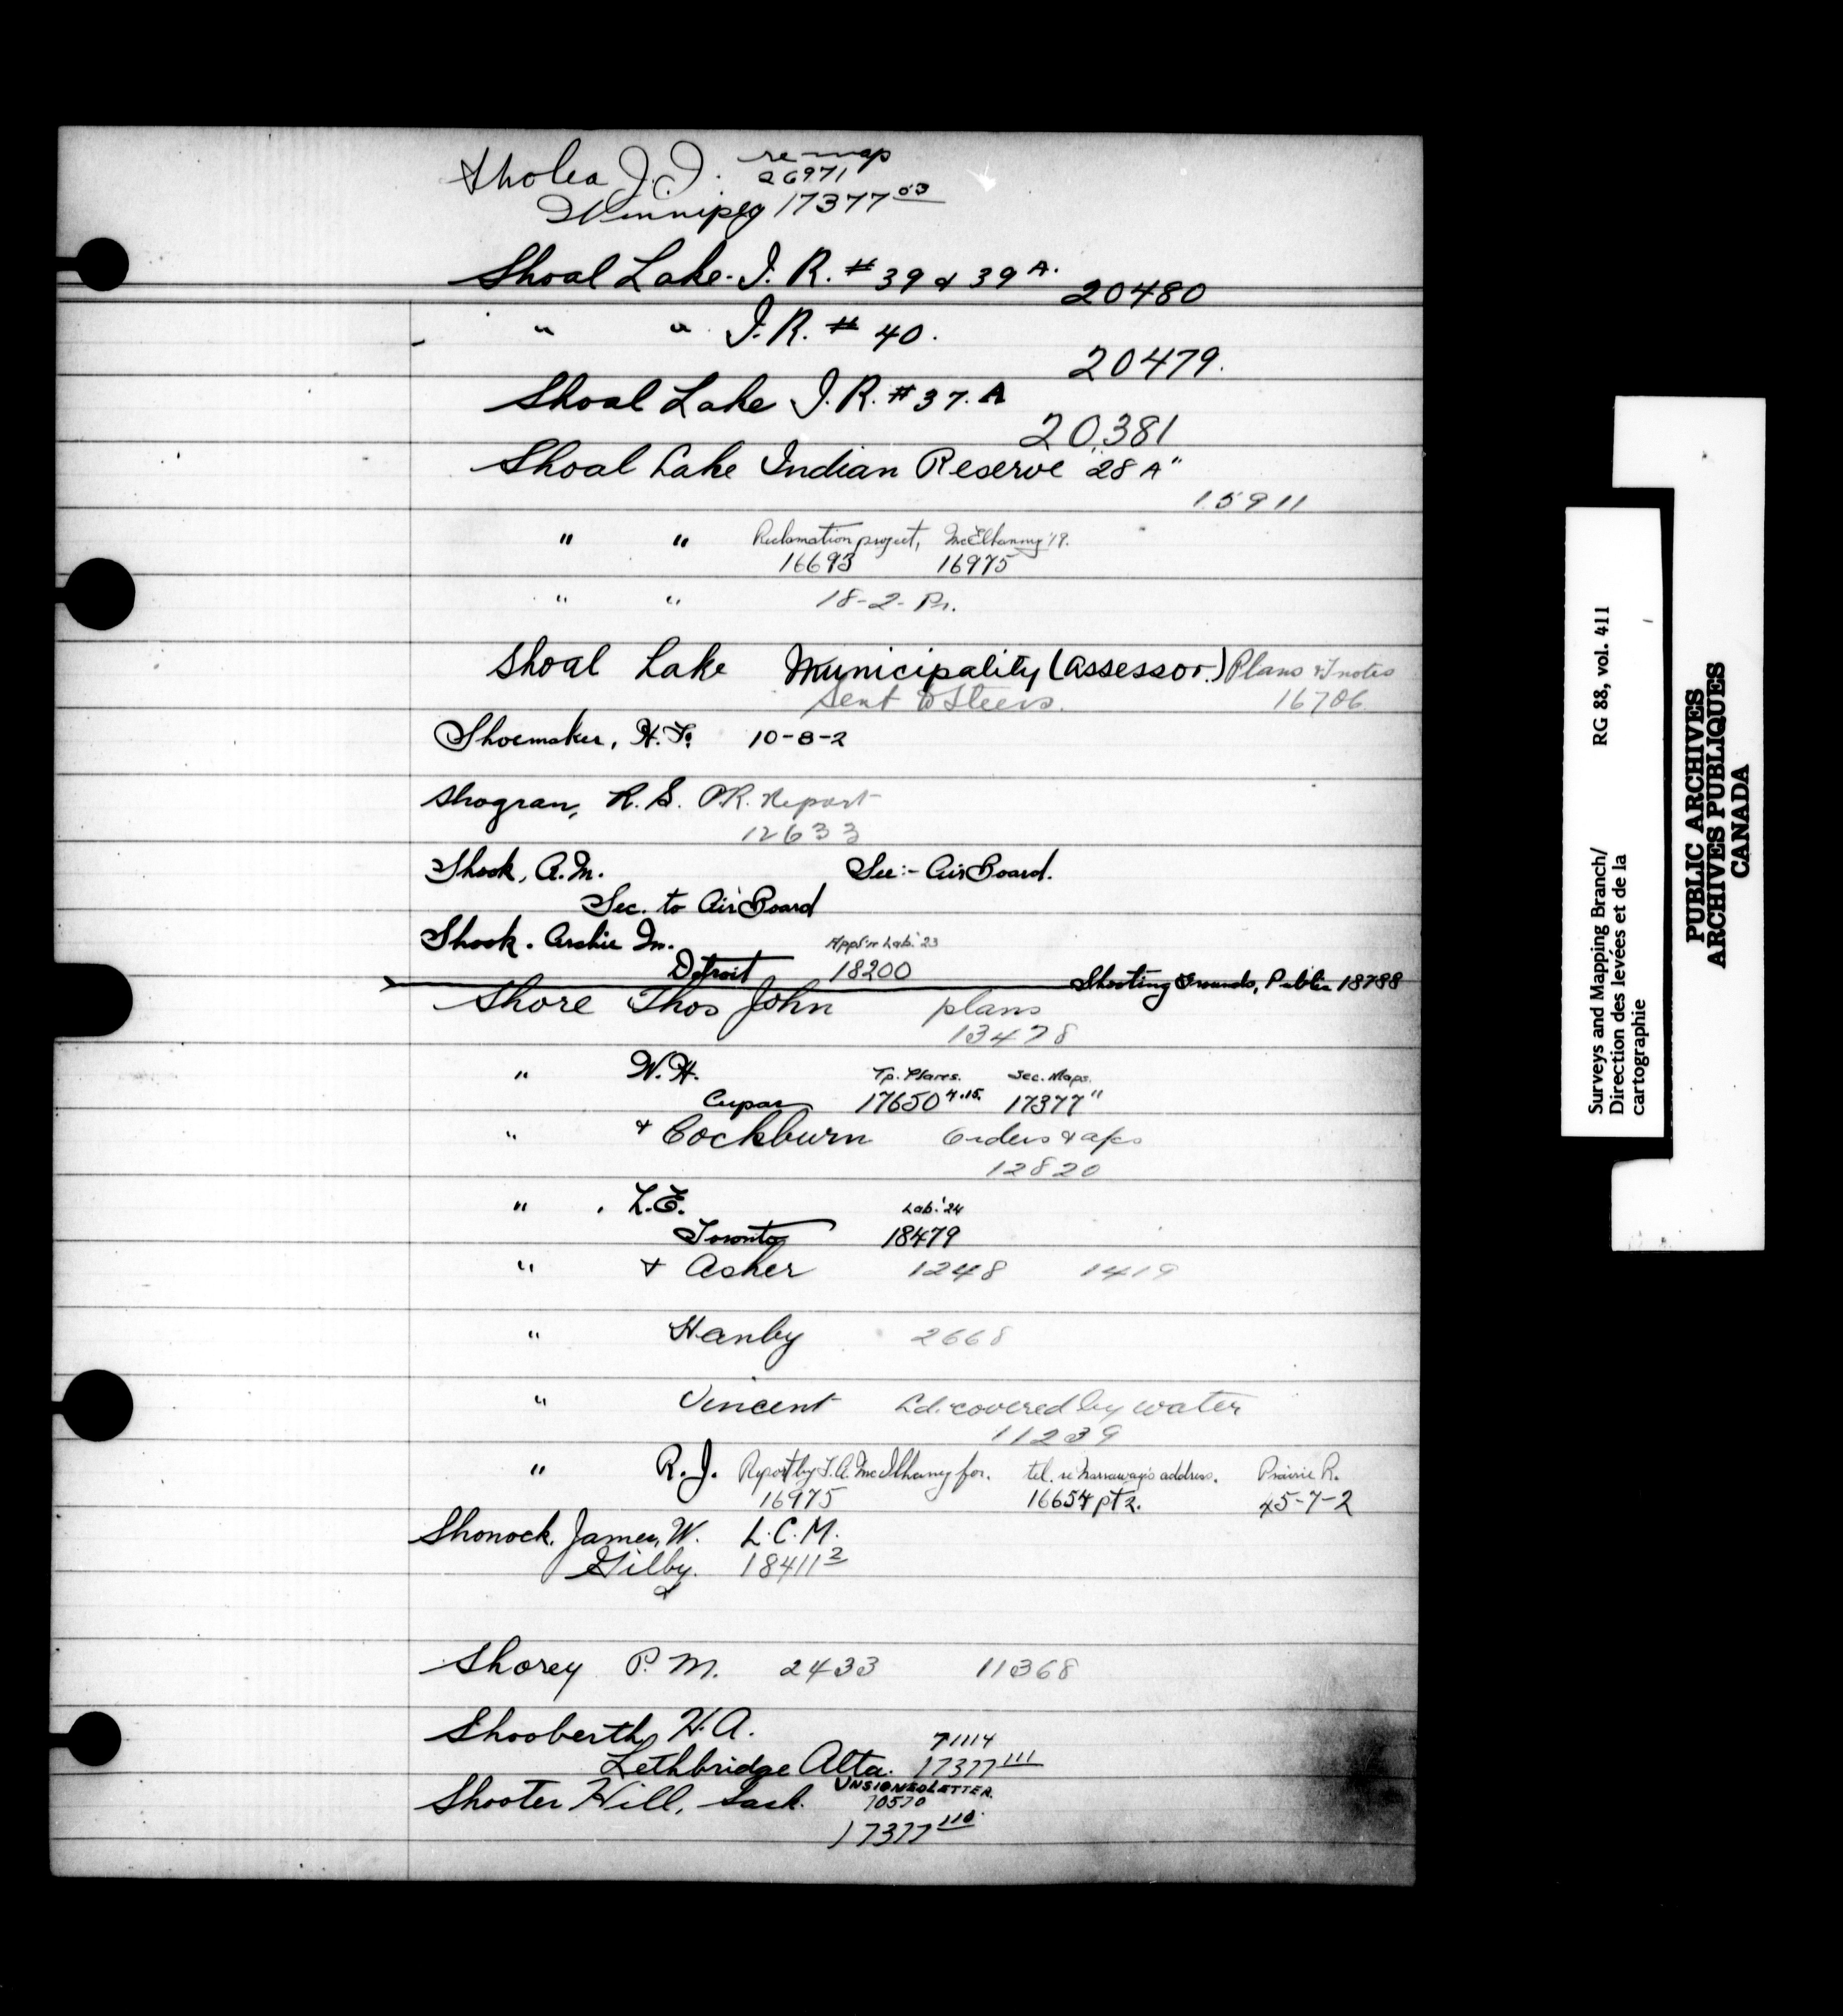 Sholea J. J. re map
26971
Winnipeg 17377 03
Shoal Lake. I. R. # 39 & 39 A. 20480
" " I. R. # 40.
20479.
Shoal Lake I. R. # 37. A
20381
Shoal Lake Indian Reserve "28 A"
15911
" " Reclamation project, McElhanney '19.
16693 16975
" " 18-2-Pr.
Shoal Lake Municipality (Assessor.) Plans & notes
Sent to Steers. 16706
Shoemaker, H. F. 10-8-2
Shogran, R. S. P.R. Report
12633
Shook, A. M. See:- Air Board.
Sec. to Air Board
Shook. Archie M. Appt'n Lab. '23
Detroit 18200
Shooting Grounds, Public 18788
Shore Thos John plans
13478
" W. H. Tp. Plans. Sec. Maps.
Cupar 17650 4.15. 17377 "
" & Cockburn Orders & afcs
12820
" , L. E. Lab. '24
Toronto 18479
" & Asher 1248 1419
" Hanby 2668
" Vincent Ld. covered by water
11239
" R. J. Report by T. A. McElhanney for. tel. re Narraway's address. Prairie R.
16975 16654 pt 2. 45-7-2
Shonock, James, W. L. C. M.
Gilby. 18411 2
Shorey P. M. 2433 11368
Shooberth, H. A.
71114
Lethbridge Alta. 17377 111
Shooter Hill, Sask. UNSIGNED LETTER.
70570
17377 110
Surveys and Mapping Branch/ RG 88, vol. 411
Direction des levées et de la
cartographie
PUBLIC ARCHIVES
ARCHIVES PUBLIQUES
CANADA